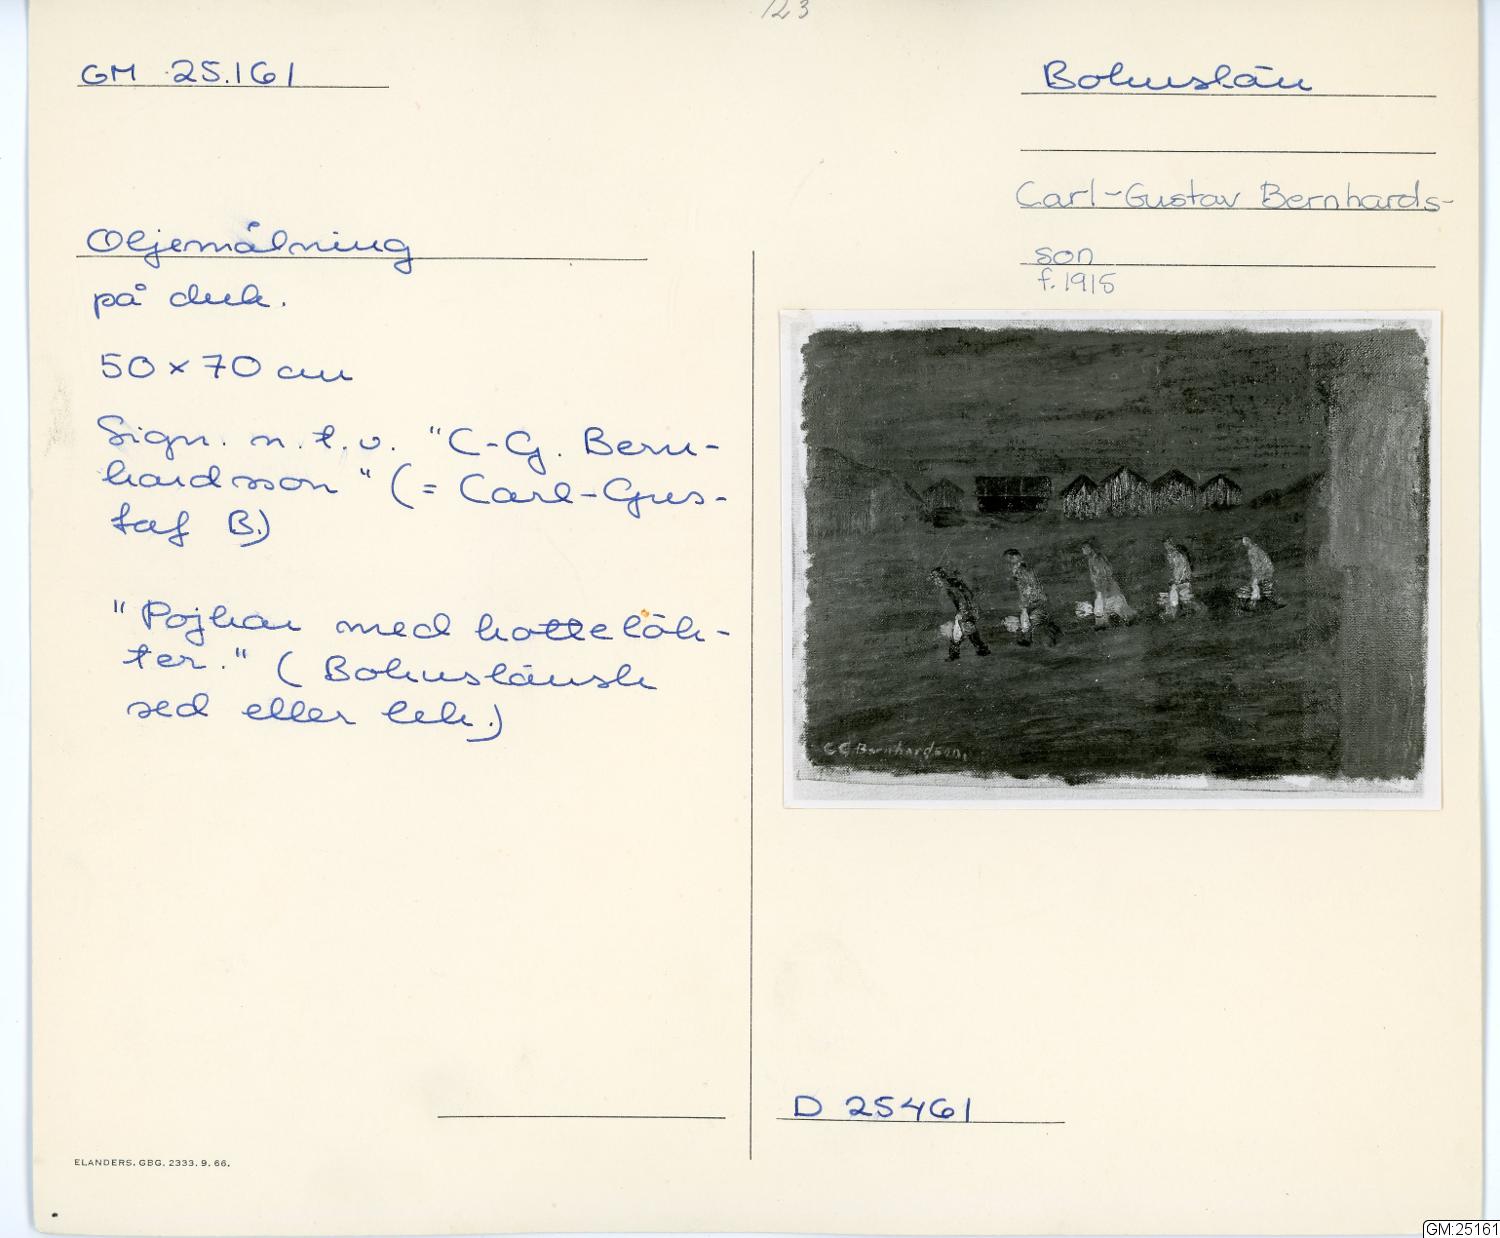 123
GM 25.161
Bohuslän
Carl-Gustav Bernhards-
son
f. 1915
Oljemålning
på duk.
50 x 70 cm
Sign. n.t.v. "C-G. Bern-
hardsson" (= Carl-Gus-
taf B.)
"Pojkar med kottelök-
ter." (Bohuslänsk
sed eller lek.)
C G Bernhardson.
D 25461
ELANDERS. GBG. 2333. 9. 66.
GM:25161